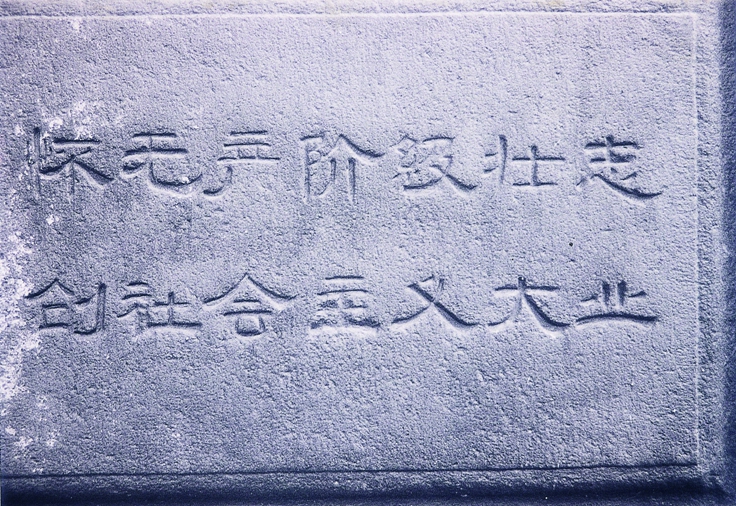 怀无产阶级壮志
创社会主义大业